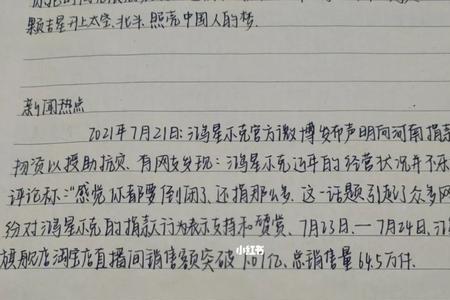 颗吉星升上太空,北斗,照亮中国人的梦.
新闻热点
2021年7月21日:鸿星尔克官方微博发布声明向河南捐款
物资以援助抗灾.有网友发现:鸿星尔克近年的经营状况并不乐
评论称:“感觉你都要倒闭了,还捐那么多.这一话题引起了众多网
纷对鸿星尔克的捐款行为表示支持和赞赏、7月23日.—7月24日,鸿
小红书
旗舰店淘宝店直播间销售额突破1.07亿、总销售量64.5万件.